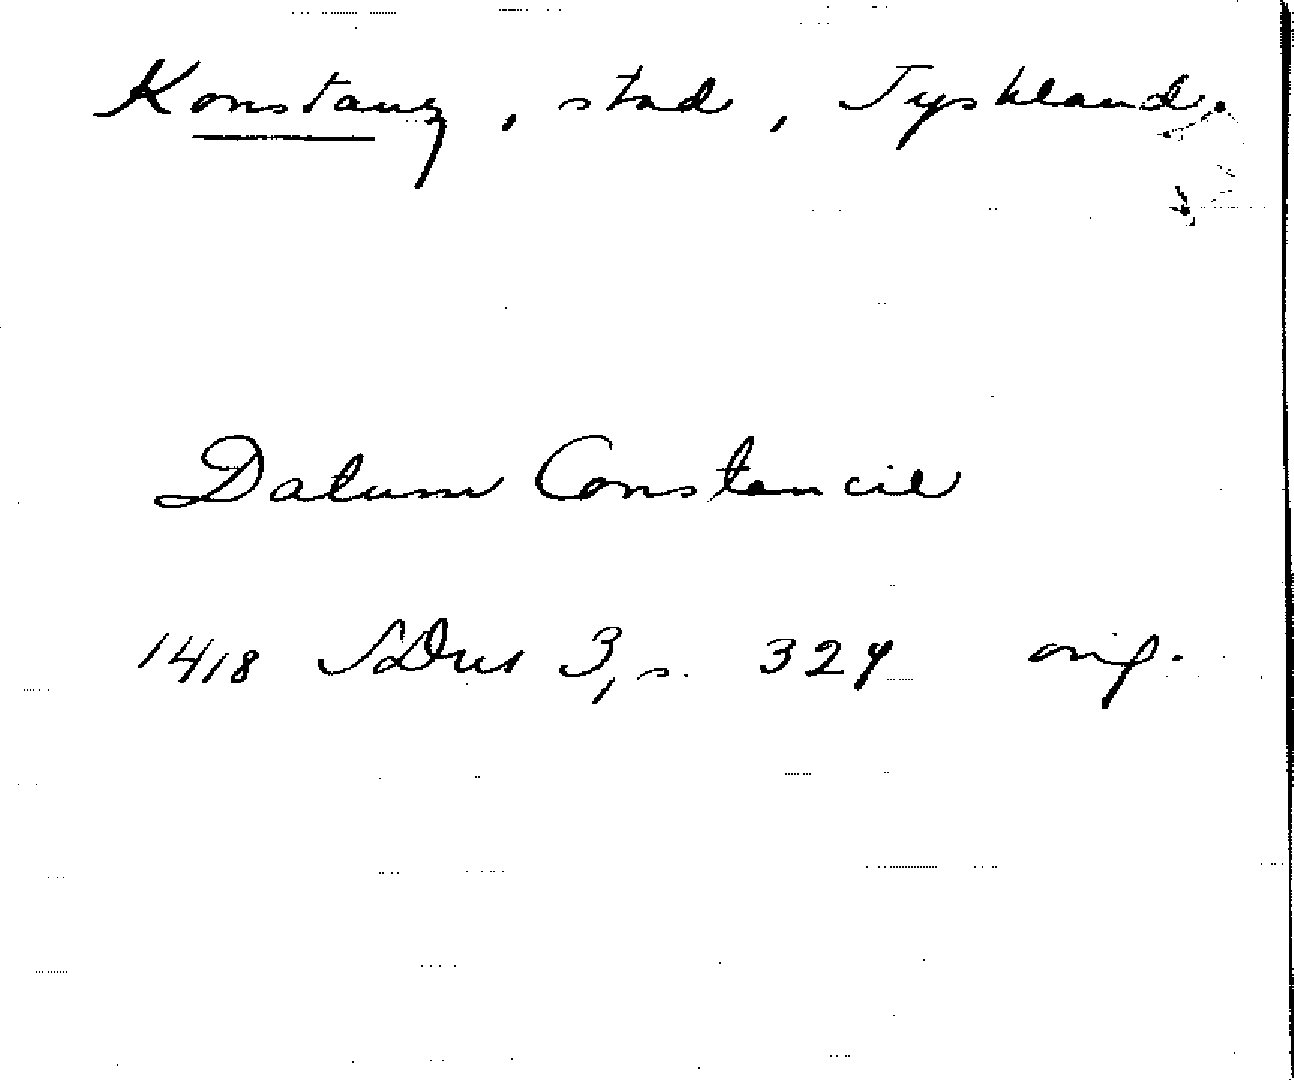 Konstanz, stad, Tyskland.
Datum Constancie
1418 SDns 3, s. 329 orig.